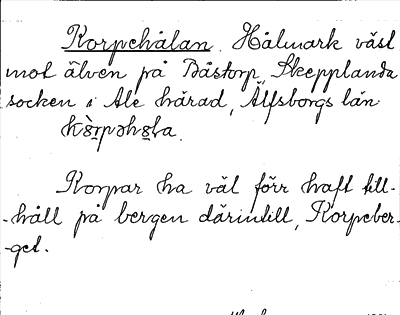 Korpehålan. Hålmark väst
mot älven på Båstorp, Skepplanda
socken i Ale härad, Älfsborgs län

Korpar ha väl förr haft till-
-håll på bergen därintill, Korpeber-
-get.